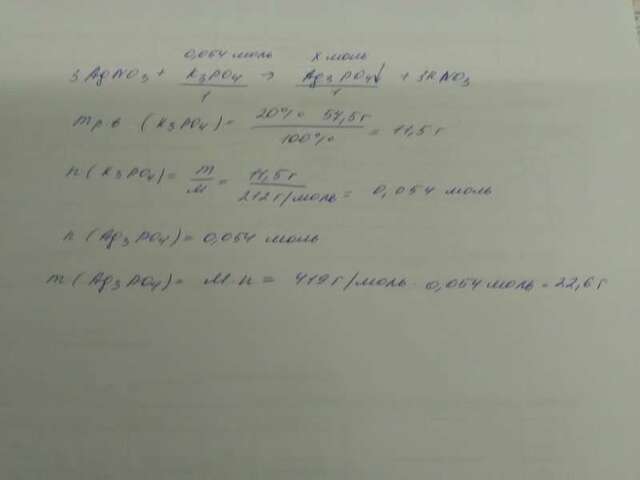 0,054 моль x моль
3AgNO3 + K3PO4 → Ag3PO4↓ + 3KNO3
1 1
mр.в (K3PO4) = 20% · 57,5г / 100% = 11,5 г
n(K3PO4) = m / M = 11,5 г / 212 г/моль = 0,054 моль
n(Ag3PO4) = 0,054 моль
m(Ag3PO4) = M·n = 419 г/моль · 0,054 моль = 22,6 г